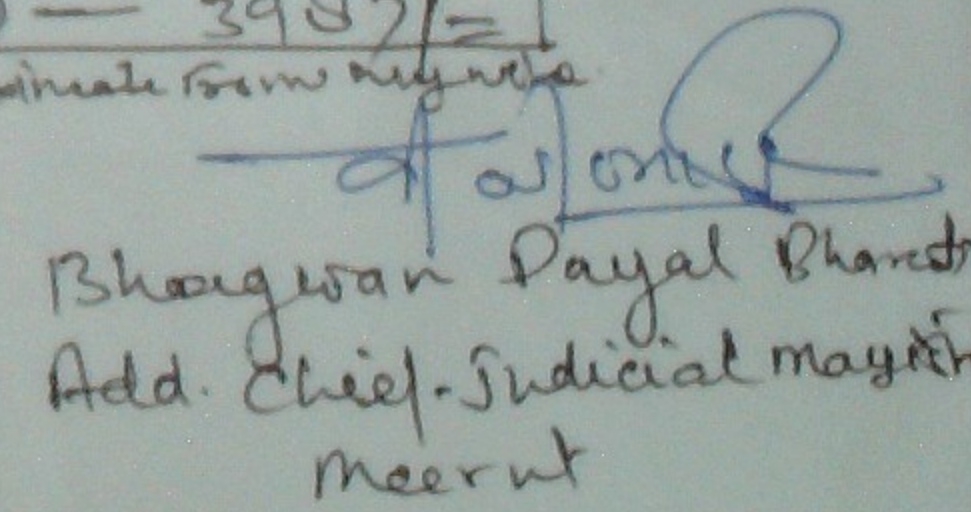 — 3957/=
from
Bhagwan Dayal Bharati
Add. Chief-Judicial magistr
Meerut